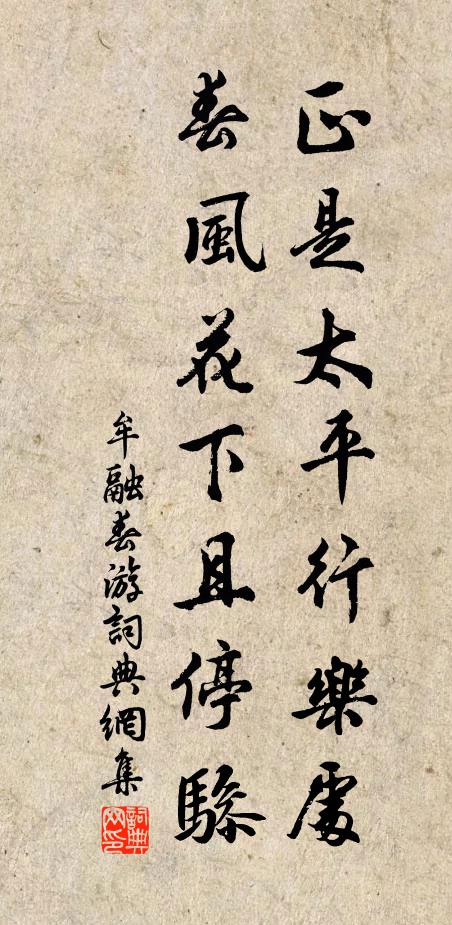 正是太平行樂處
春風花下且停驂
牟融春游詞典網集
詞典網印